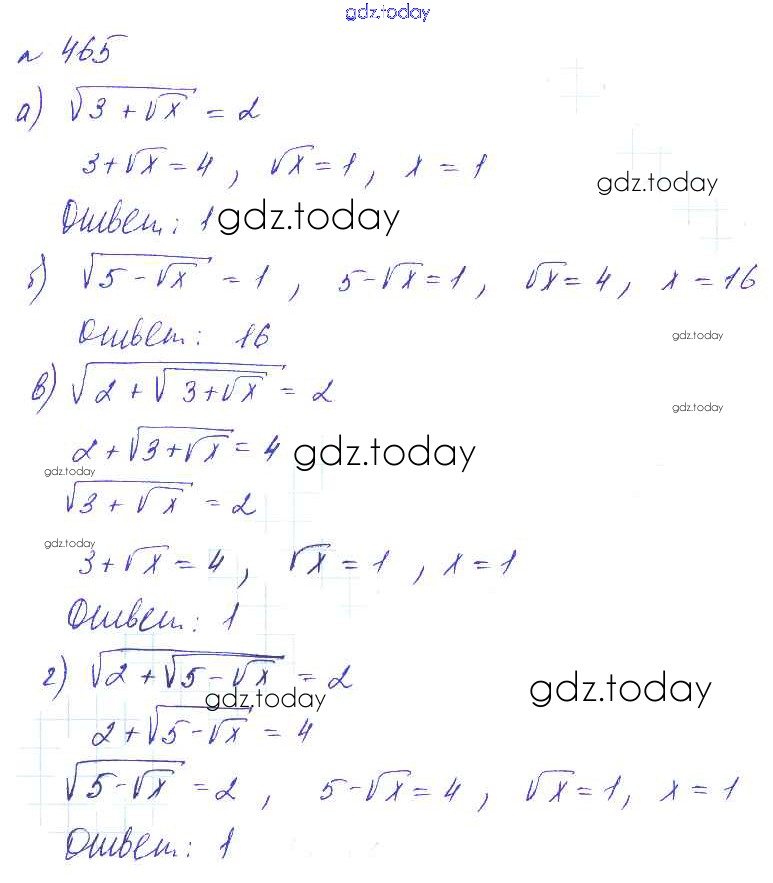 gdz.today
№ 465
а) √(3 + √x) = 2
3 + √x = 4, √x = 1, x = 1
gdz.today
Ответ: 1
gdz.today
б) √(5 - √x) = 1, 5 - √x = 1, √x = 4, x = 16
Ответ: 16
gdz.today
в) √(2 + √(3 + √x)) = 2
gdz.today
2 + √(3 + √x) = 4
gdz.today
gdz.today
√(3 + √x) = 2
gdz.today
3 + √x = 4, √x = 1, x = 1
Ответ: 1
г) √(2 + √(5 - √x)) = 2
gdz.today
gdz.today
2 + √(5 - √x) = 4
√(5 - √x) = 2, 5 - √x = 4, √x = 1, x = 1
Ответ: 1